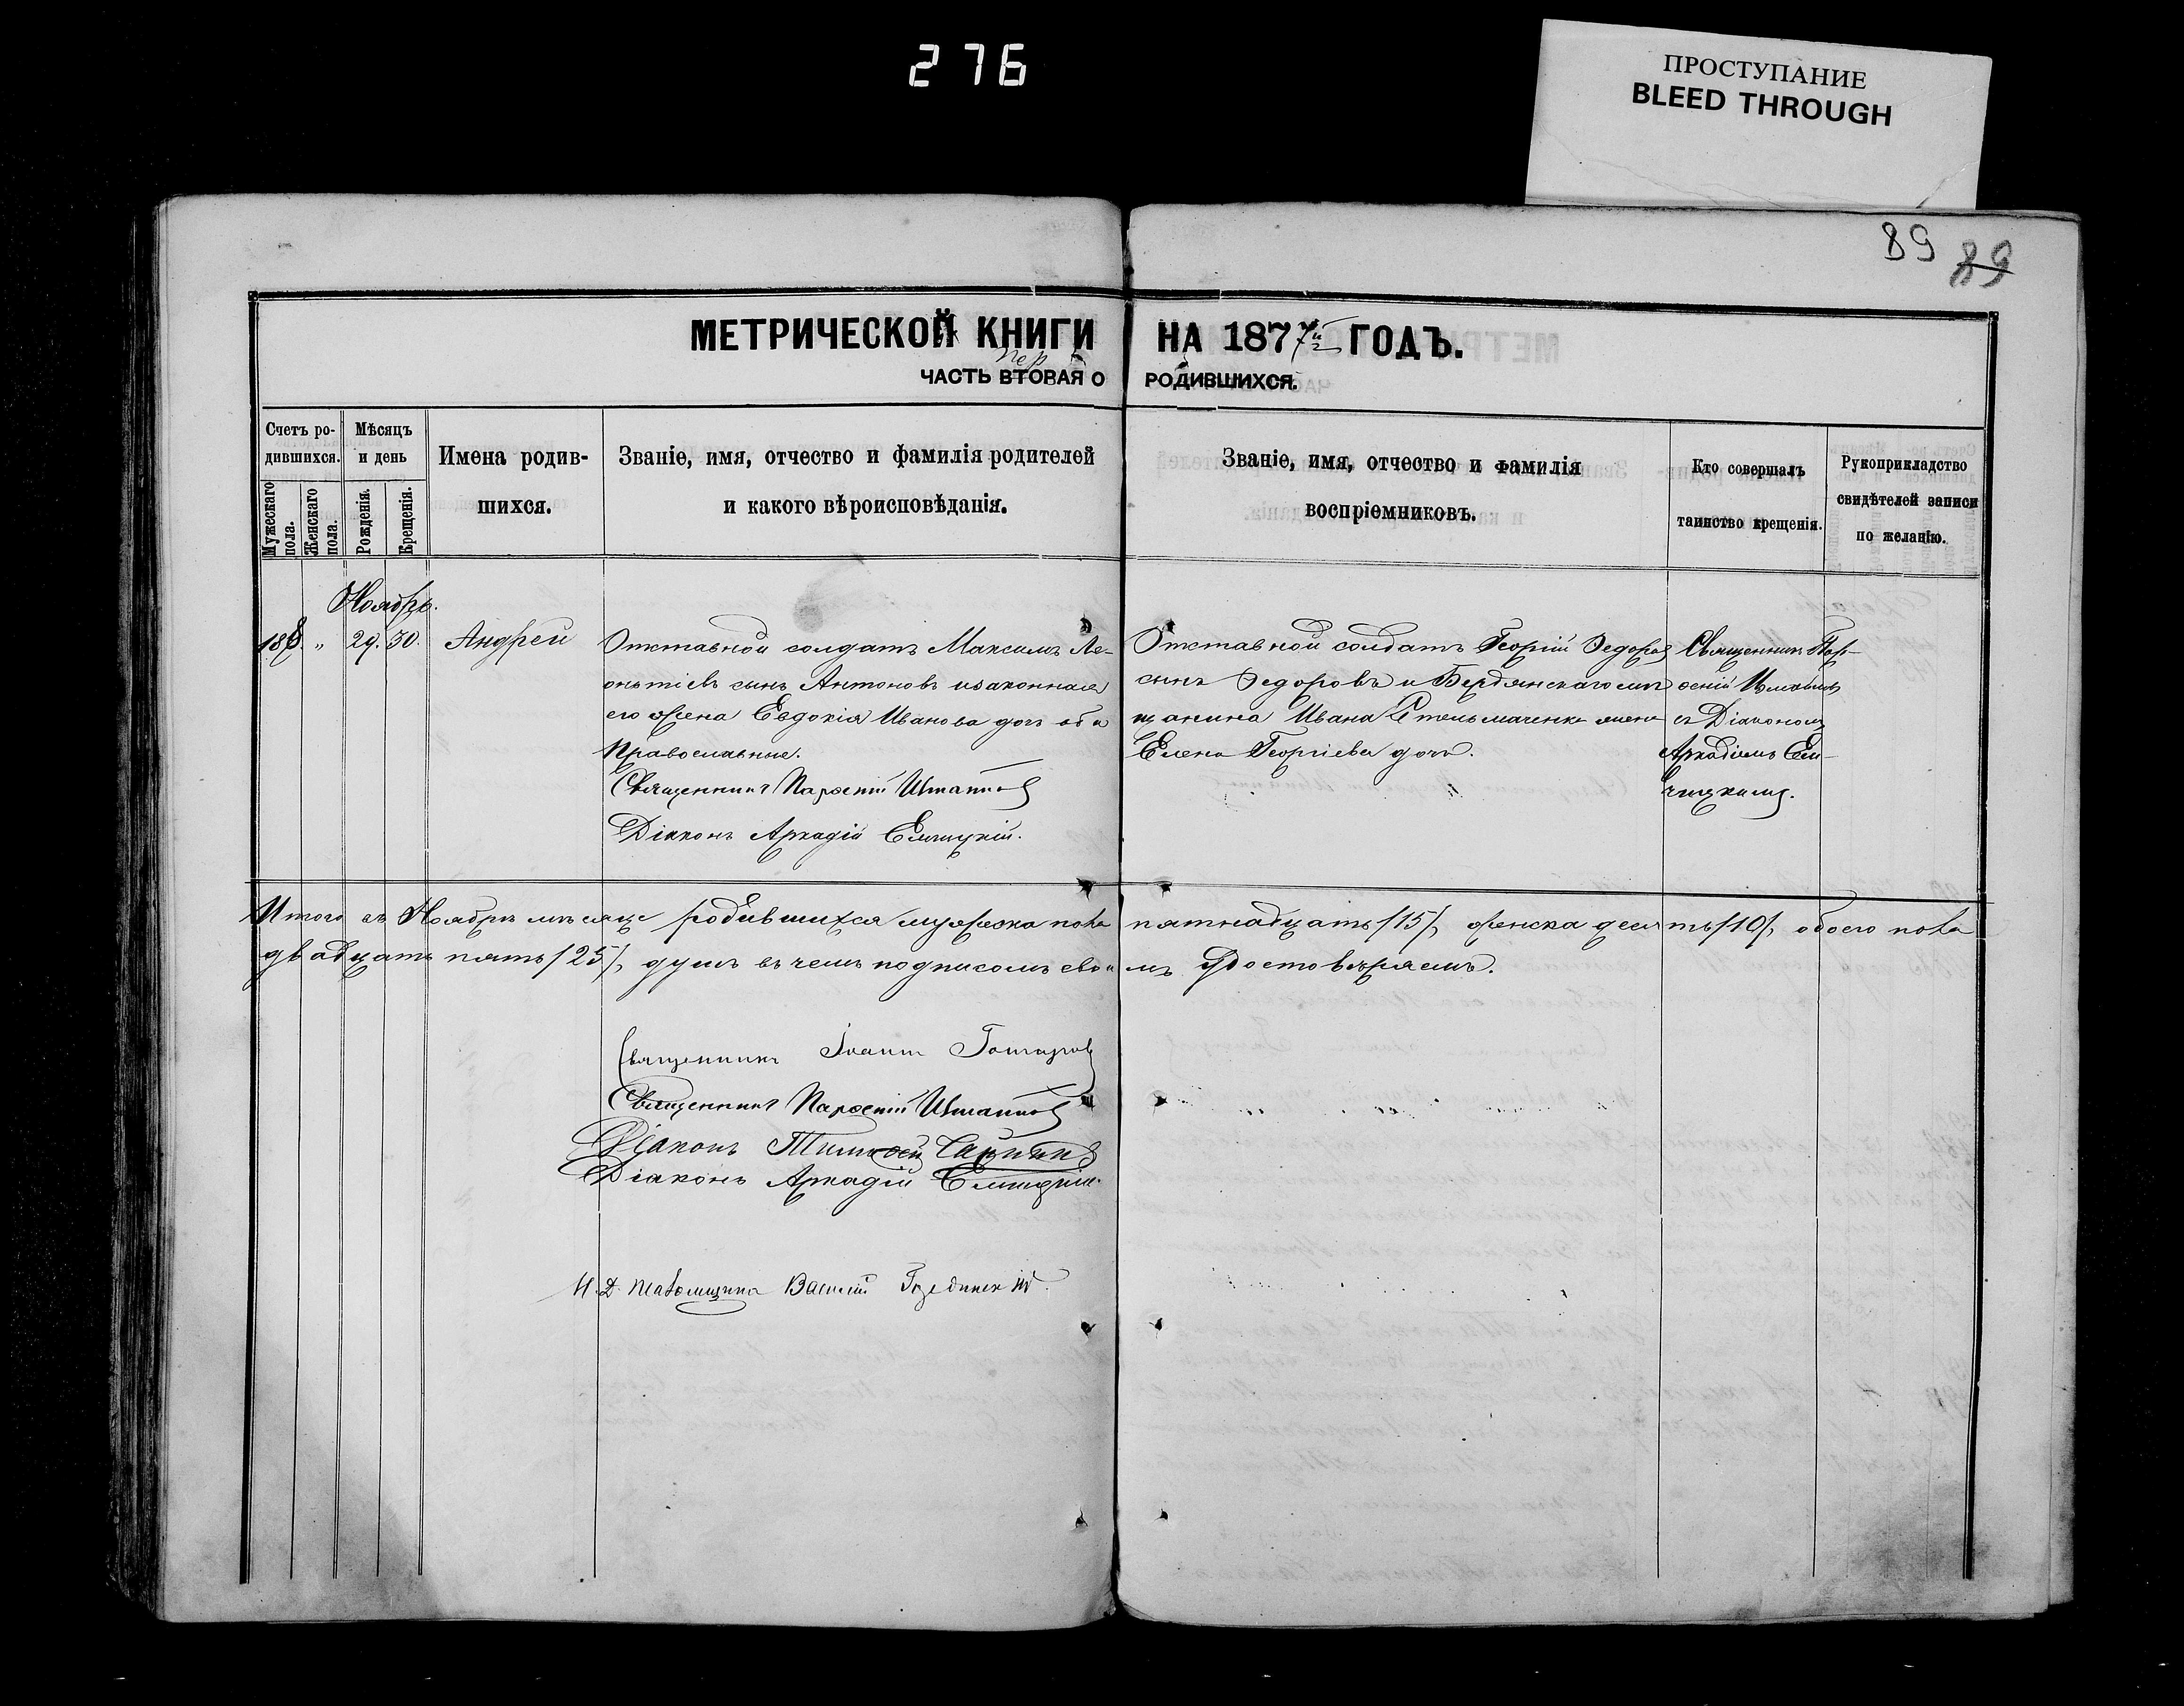 276
ПРОСТУПАНИЕ
BLEED THROUGH
89 89
МЕТРИЧЕСКОЙ КНИГИ НА 1877й ГОДЪ.
пер
ЧАСТЬ ВТОРАЯ О РОДИВШИХСЯ.
Счетъ ро-
дившихся.
Мужескаго пола.
Женскаго пола.
Мѣсяцъ
и день
Рожденія.
Крещенія.
Имена родив-
шихся.
Званіе, имя, отчество и фамилія родителей
и какого вѣроисповѣданія.
Званіе, имя, отчество и фамилія
воспріемниковъ.
Кто совершалъ
таинство крещенія.
Рукоприкладство
свидѣтелей записи
по желанію.
Ноябрь.
188. „ 29. 30. Андрей
Отставной солдатъ Максимъ Ле-
онтіевъ сынъ Антоновъ и законная
его жена Евдокія Иванова дочь оба
Православные.
Священникъ Парѳеній
Діаконъ Аркадій
Отставной солдатъ Георгій Ѳедоровъ
сынъ Ѳедоровъ и Бердянскаго мѣ
щанина Ивана Стельмаченка жена
Елена Георгіева дочь.
Священникъ Пар-
ѳеній
съ Діакономъ
Аркадіемъ
Итого въ Ноябрѣ мѣсяце родившихся мужеска пола пятнадцать /15/, женска десять /10/, обоего пола
двадцать пять /25/, душъ въ чемъ подписомъ своимъ удостовѣряемъ.
Священникъ Іоаннъ
Священникъ Парѳеній
Діаконъ Тимоѳей
Діаконъ Аркадій
И. Д. Псаломщика Василій